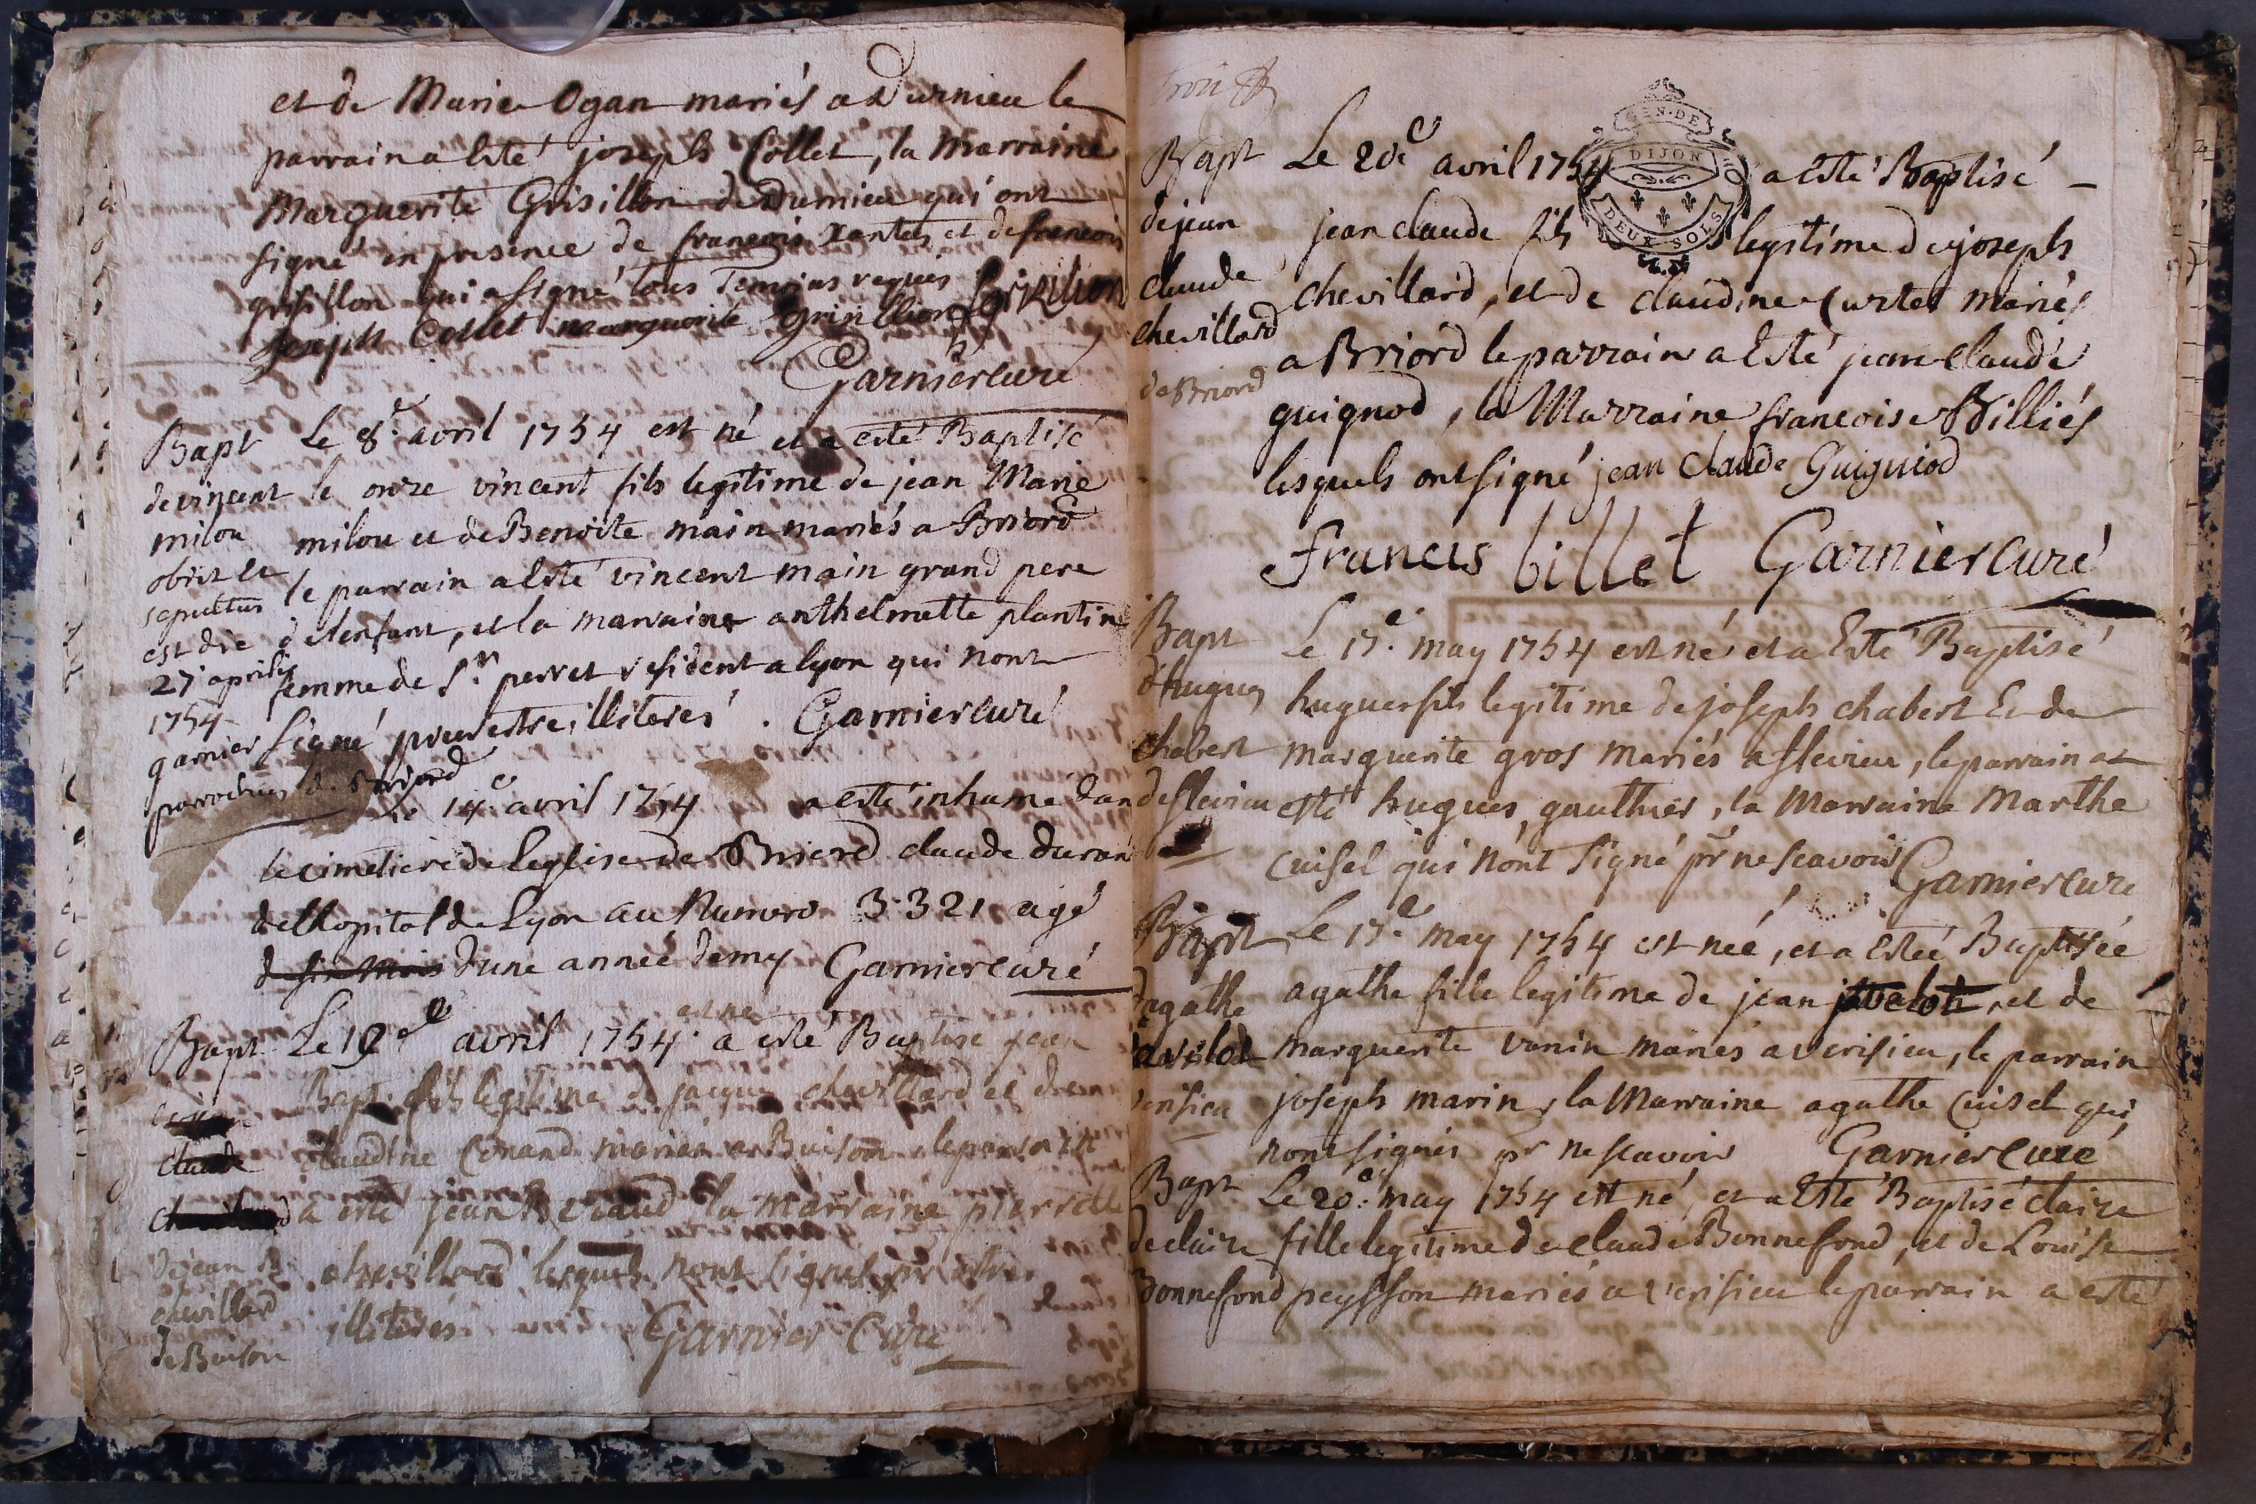 et de Marie Ogan mariés a Durnieu le
parrain a esté joseph Collet, la Marraine
Marguerite Grisillon de Durnieu qui ont
signé en presence de francois et de francois
grisillon qui a signé tous Temoins requis
joseph Collet marguerite Grisillion Grisilion
Garnier curé
Bapt
de vincent
milou
obiit et
sepultus
est die
27 aprilis
1754
garnier
parrochus de Briord
Le 8.e avril 1754 est né et a esté Baptisé
le onze vincent fils legitime de jean Marie
milou et de Benoite main mariés a Briord
le parrain a esté vincent main grand pere
de lenfant, et la marraine anthelmette plantin
femme de Sr. perret resident a lyon qui nont
signé pour estre illiterés. Garnier curé
Le 14.e avril 1754 a esté inhumé dan
le cimetiere de leglise de Briord claude duran
de lhopital de Lyon au Numero 3321 agé
dune année demy Garnier curé
Bapt
claude
de jean B.
chevillard
de Buison
est né
Le 19.e avril 1754. a esté Baptisé jean
Bapt. fils legitime de jacque chevillard et de
claudine Conand mariés a Buison le parrain
a esté jean la Marraine pierrette
chevillard lesquels nont signé pr estre
illiterés Garnier Curé
Trois
GEN. DE DIJON
DEUX SOLS
Bapt
de jean
claude
chevillard
de Briord
Le 20.e avril 1754 a esté Baptisé
jean claude fils legitime de joseph
chevillard, et de claudine Curtet mariés
a Briord le parrain a esté jean claude
guignod, la Marraine francoise Billiés
lesquels ont signé jean Claude Guigniod
francis billet Garnier curé
Bapt
d'hugues
chabert
de flevieu
Le 17.e may 1754 est né et a Esté Baptisé
hugues fils legitime de joseph chabert Et de
marguerite gros mariés a flevieu, le parrain a
esté hugues gauthier, la Marraine Marthe
cuisel qui nont signé pr ne scavoir Garnier curé
Bapt
d'agathe
javelot
verisieu
Le 17.e may 1754 est neé, et a Esteé Baptisée
agathe fille legitime de jean javelot, et de
marguerite vanin mariés a verisieu, le parrain
joseph marin, la Marraine agathe Cuisel qui
nont signés pr ne scavoir Garnier Curé
Bapt
de claire
Bonnefond
Le 20.e may 1754 est né, et a Esté Baptisé claire
fille legitime de claude Bonnefond, et de Louise
peysson mariés a verisieu le parrain a esté